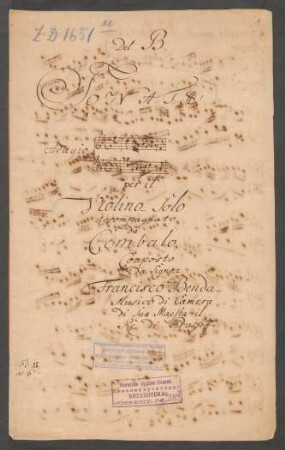 ZD 1651 u
Del B.
SONATA
Adagio
per il
Violino Solo
accompagnato
da
Cembalo
Composto
da Signor
Francisco Benda
Musico di Camera
di Sua Maesta il
Ré di
БИБЛИОТЕКА